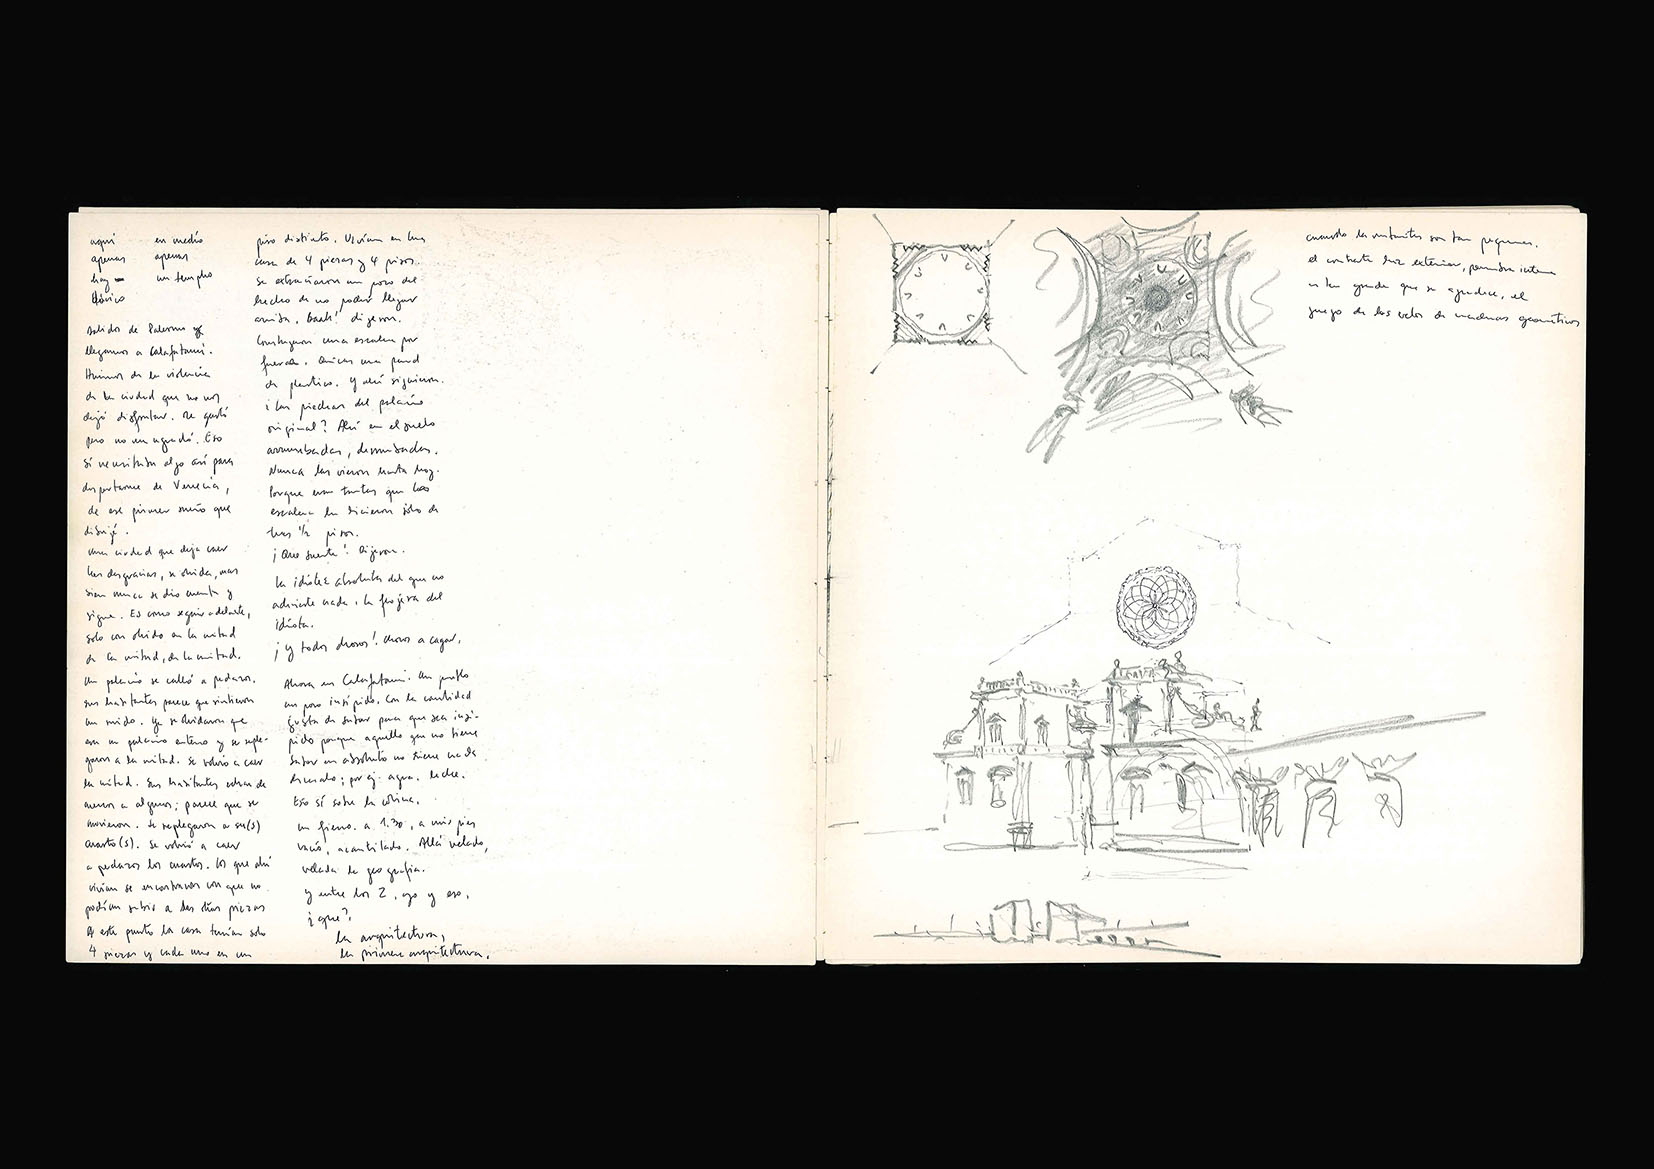 aquí en medio
apenas apenas
hay un templo
dórico
salidos de Palermo y
llegamos a Calatafimi.
Huimos de la violencia
de la ciudad que no nos
dejó disfrutar. Me gustó
pero no me agradó. Eso
sí necesitaba algo así para
despertarme de Venecia,
de ese primer sueño que
dibujé.
una ciudad que deja caer
las desgracias, se olvida, mas
bien nunca se dio cuenta y
sigue. Es como seguir adelante,
solo con olvido en la mitad
de la mitad, de la mitad.
Un palacio se calló a pedazos.
sus habitantes parece que sintieron
un ruido. Ya se olvidaron que
era un palacio entero y se reple-
garon a la mitad. Se volvió a caer
la mitad. Sus habitantes echan de
menos a algunos; parece que se
movieron. Se replegaron a su(s)
cuarto(s). Se volvió a caer
a pedazos los cuartos. Los que ahí
vivían se encontraron con que no
podían subir a las otras piezas
A este punto la casa tenían solo
4 piezas y cada una en un
piso distinto. Vivían en una
casa de 4 piezas y 4 pisos.
Se extrañaron un poco del
hecho de no poder llegar
arriba. Baah! dijeron.
Construyeron una escalera por
fuera. Quizas una pared
de plastico. Y ahí siguieron.
¿Las piedras del palacio
original? Ahí en el suelo
arrumbadas, derrumbadas.
Nunca las vieron hasta hoy.
Porque eran tantas que las
escalera la hicieron sólo de
tres 1/2 pisos.
¡Que suerte! Dijeron.
la idiotez absoluta del que no
advierte nada. la flojera del
idiota.
¡y todos choros! choros a cagar.
Ahora en Calatafimi. Un pueblo
un poco insípido. Con la cantidad
justa de sabor para que sea insí-
pido porque aquello que no tiene
sabor en absoluto no tiene nada
de malo; por ej. agua. leche.
Eso sí sobre la colina.
un fierro. a 1.30, a mis pies
vacío, acantilado. Allá velado,
velada la geografía.
y entre los 2, yo y eso,
¿que?
la arquitectura,
la primera arquitectura.
cuando las ventanas son tan pequeñas.
el contraste luz exterior, penumbra interna
es tan grande que se agudice, el
juego de los velos de maderas geométricos